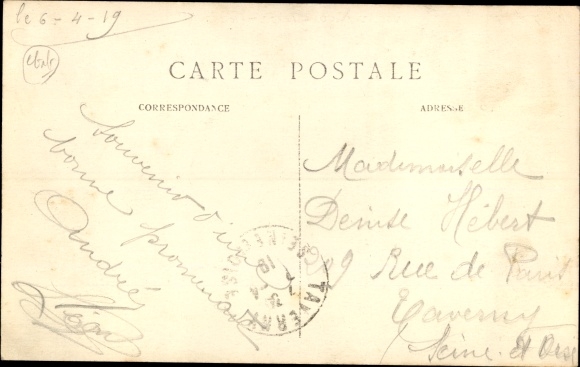 le 6-4-19
CARTE POSTALE
CORRESPONDANCE
ADRESSE
Souvenir d'une
bonne promenade
Andrée
Mademoiselle
Denise Hébert
209 Rue de Paris
Taverny
Seine-et-Oise
TAVERNY